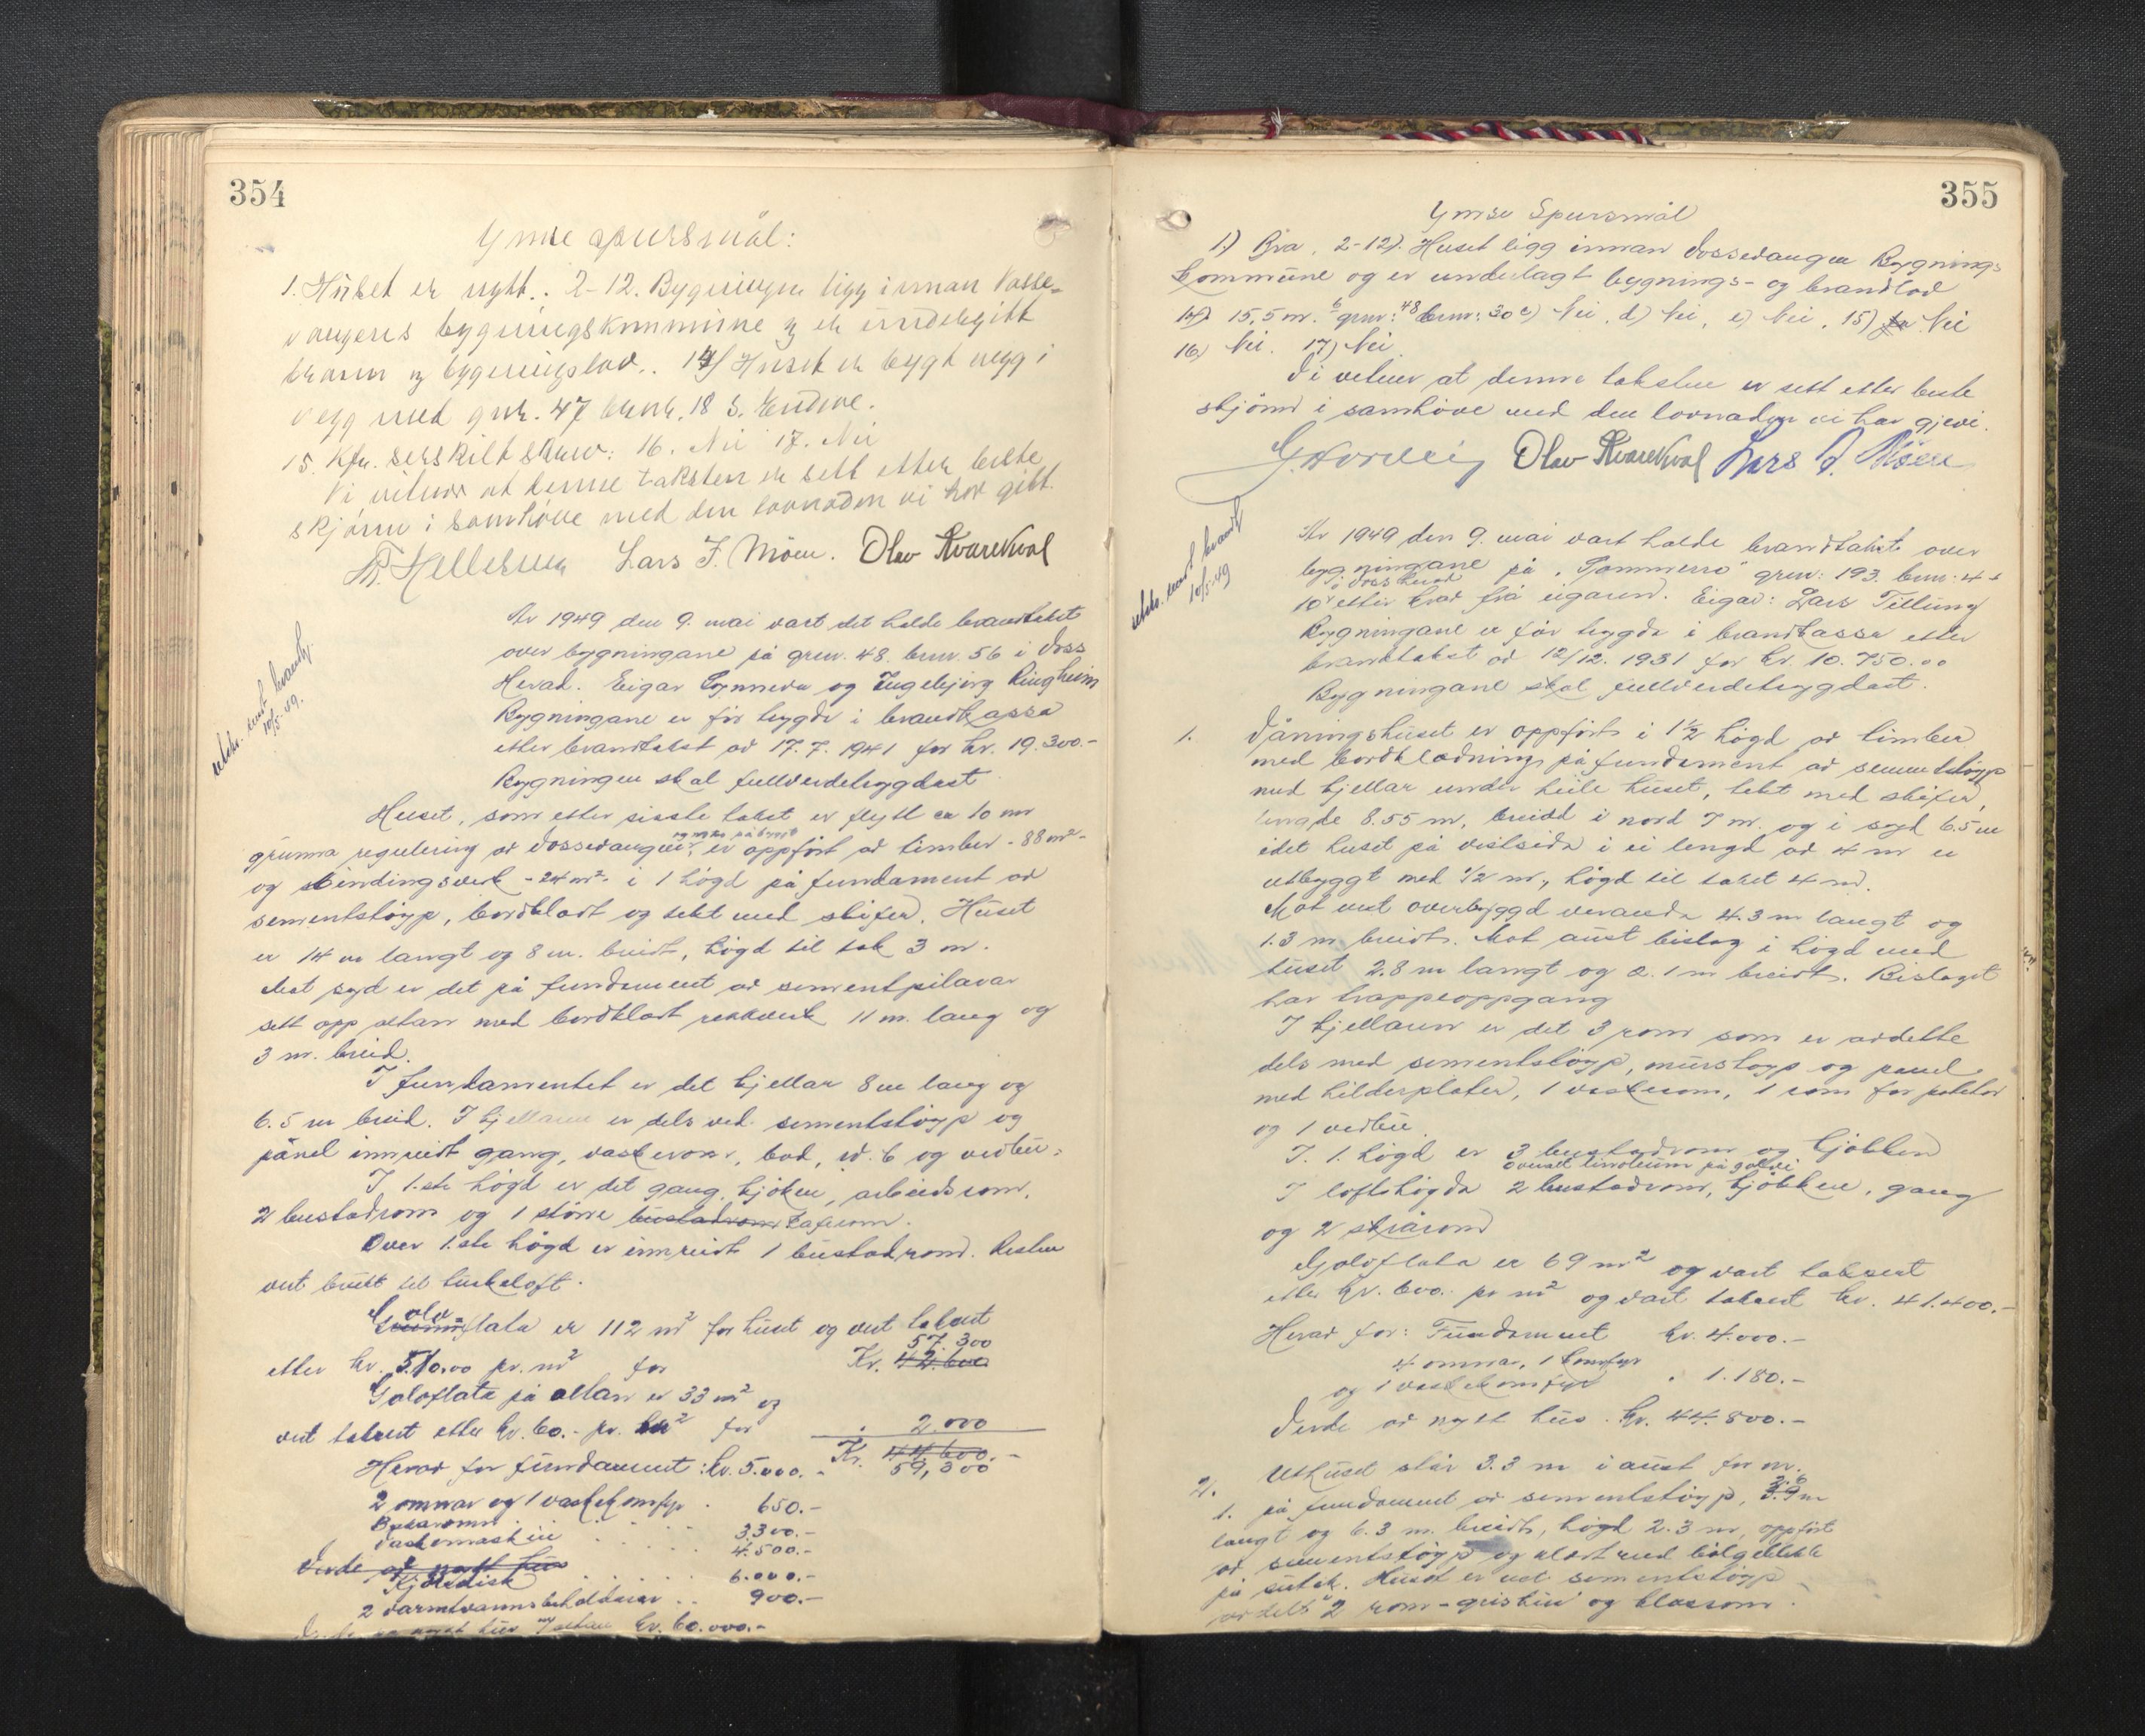 354
Ymse spursmål:
1. Huset er nytt. 2-12. Bygningen ligg innan Vosse-
vangens bygningskommune og er undelagt
brann og bygningslov. 14/ Huset er bygt vegg i
vegg med gnr. 47 bnr. 18 S. Endeve.
15. Kfr. serskilt skriv: 16. Nei 17. Nei
Vi vitnar at denne taksten er sett etter beste
skjønn i samhøve med den lovnaden vi har gitt.
Lars J. Möen. Olav Kvarekval
utskr. sendt brandk.
10/5-49.
År 1949 den 9. mai vart det halde brandtakst
over bygningane på grnr. 48. bnr. 56 i Voss
Herad. Eigar Synneva og Ingebjørg Ringheim
Bygningane er før trygda i brandkassa
etter brandtakst av 17.7. 1941 for kr. 19.300.-
Bygningen skal fullverdetrygdast
Huset, som etter siste takst er flytt ca 10 m
grunna regulering av Vossevangen, er oppført av timber - 88 m² -
og bindingsverk - 24 m² - i 1 högd på fundament av
sementstöyp, bordkledt og tekt med skifer. Huset
er 14 m langt og 8 m. breidt, högd til tak 3 m.
Mot syd er det på fundament av sementpilarar
sett opp altan med bordkledt rekkverk 11 m. lang og
3 m. breid.
I fundamentet er det kjellar 8 m lang og
6.5 m breid. I kjellaren er dels ved sementstöyp og
panel innreidt gang, vaskerom, bod, w.c. og vedbu.
I 1.ste högd er det gang, kjöken, arbeidsrom,
2 bustadrom og 1 större bustadrom kaferom.
Over 1.ste högd er innreidt 1 bustadrom. Resten
vert brukt til turkeloft.
Golvflata er 112 m² for huset og vert taksert
57.300
etter kr. 510.00 pr. m² for Kr. 42.600
Golvflata på altan er 33 m² og
vert taksert etter kr. 60.- pr. m² for 2.000
Kr. 44.600.-
59,300
Herav for fundament: kr. 5.000.-
2 omnar og 1 vaskekomfyr . 650.-
Bakaromn . . . . . 3.300.-
Vaskemaskin . . . . . 4.500.-
Verde av nytt hus
Kjöledisk . . . . . 6.000.-
2 varmtvannsbeholdarar . . 900.-
Verde av nytt hus m/altan kr. 60.000.-
355
Ymse Spursmål
1.) Bra. 2-12). Huset ligg innan Vossevangen Bygnings
kommune og er underlagt bygnings- og brandlov
14) 15,5 m. b grnr: 48 bnr: 30 c) Nei, d) Nei, e) Nei, 15) Ja Nei
16) Nei. 17) Nei
Vi vitner at denne taksten er sett etter beste
skjönn i samhöve med den lovnaden vi har gjevi.
Olav Kvarekval Lars J. Möen
utskr. sendt brandk.
10/5-49
År 1949 den 9. mai vart halde brandtakst over
bygningane på "Tømmerro" grnr: 193. bnr: 4 +
i Voss herad
10 etter krav frå eigaren. Eigar: Lars Tillung
Bygningane er för trygda i brandkassa etter
brandtakst av 12/12. 1931 for kr. 10.750.00
Bygningane skal fullverdetrygdast.
1. Våningshuset er oppfört i 1½ högd av timber
med bordkledning på fundament av sementstöyp
med kjellar under heile huset, tekt med skifer,
lengde 8.55 m, breidd i nord 7 m. og i syd 6.5 m
idet huset på vestsida i ei lengd av 4 m er
utbyggt med ½ m., högd til taket 4 m.
Mot vest overbyggd veranda 4.3 m langt og
1.3 m breidt. Mot aust bislag i högd med
huset 2.8 m langt og 2.1 m breidt. Bislaget
har trappeoppgang
I kjellaren er det 3 rom som er avdelte
dels med sementstöyp, murstöyp og panel
med hilderplater, 1 vaskerom, 1 rom for poteter
og 1 vedbu.
I. 1. högd er 3 bustadrom og kjökken
overalt linoleum på golvi
I loftshögda 2 bustadrom, kjökken, gang
og 2 skrårom
Golvflata er 69 m² og vart taksert
etter kr. 600.- pr m² og vart taksert kr. 41.400.-
Herav for: Fundament kr. 4.000.-
4 omnar, 1 komfyr
og 1 vaskekomfyr . 1.180.-
Verde av nytt hus . kr. 44.800.-
2. Uthuset står 3.3 m i aust for nr.
1. på fundament av sementstöyp, 3.6 m
langt og 6.3 m. breidt, högd 2.3 m, oppfört
av sementstöyp og kledt med bölgeblekk
på sutak. Huset er ved sementstöyp
avdelt i 2 rom - grishus og klosom.